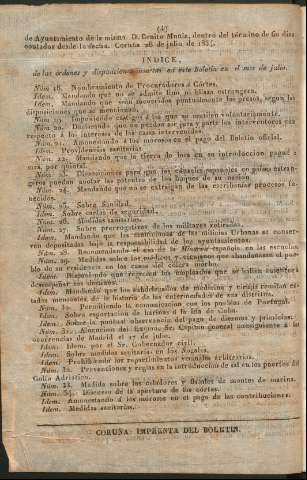 (4)
de Ayuntamiento de la misma D. Benito Muniz, dentro del término de 60 dias
contados desde la fecha. Coruña 28 de julio de 1834.
INDICE,
de las órdenes y disposiciones insertas en este Boletin en el mes de julio.
Núm 18. Nombramiento de Procuradores á Córtes.
Idem. Mandando que no se admite lino ni hilaza estrangera.
Idem. Mandando que sean socorridos puntualmente los presos, segun las
disposiciones que se mencionan.
Núm. Imponiendo castigos á los que se mutilen voluntariamente.
Núm. Declarando que no puedan ser para parte los interventores con
respecto á los intereses de las casas intervenidas.
Núm. 21. Amonestando á los morosos en el pago del Boletin oficial.
Idem. Providencias sanitarias.
Núm. 22. Mandando que la tierra de loza en su introduccion pague á
Núm. 23. Disposiciones para que los súbditos españoles en países estran-
geros puedan anotar las patentes de los buques de su nacion.
Núm. 24. Mandando que no se extraigan de las escribanías procesos fe-
necidos.
Núm. 25. Sobre Sanidad.
Idem. Sobre cartas de seguridad.
Núm. 26. Medidas sanitarias.
Núm. 27. Sobre prerrogativas de los militares retirados.
Idem. Mandando que las de milicias Urbanas se conser-
ven depositadas bajo la responsabilidad de los ayuntamientos.
Núm. 28. Recomendando el uso de la en las escuelas
Núm. 29. Medidas sobre los médicos y cirujanos que abandonasen el pue-
blo de su residencia en los casos de cólera morbo.
Idem. Disponiendo que los empleados que se hallan
desempeñar sus destinos.
Idem. Mandando que los subdelegados de medicina y cirujía remitan es-
tados mensuales de la historia de las enfermedades de sus distritos.
Núm. 30. Permitiendo la comunicacion con los pueblos de Portugal.
Idem. Sobre esportacion de harinas á la isla de Cuba.
Idem. Sobre la puntual observancia del pago de diezmos y primicias.
Núm. 31. Alocucion del Exemo. Sr. Capitan general consiguiente á las
ocurrencias de Madrid el 17 de julio.
Idem. Idem. por el Sr. Gobernador civil.
Idem. Sobre medidas sanitarias en los Nogales.
Idem. Prohibiendo los repartimientos vecinales arbitrarios.
Núm. 32. Prevenciones y reglas en la introduccion de sal en los puertos del
Golfo Adriático.
Núm. 33. Medida sobre los celadores y fiscales de montes de marina.
Núm. 34. Discurso de la apertura de las córtes.
Idem. Amonestando á los morosos en el pago de las contribuciones.
Idem. Medidas sanitarias.
CORUÑA: IMPRENTA DEL BOLETIN.